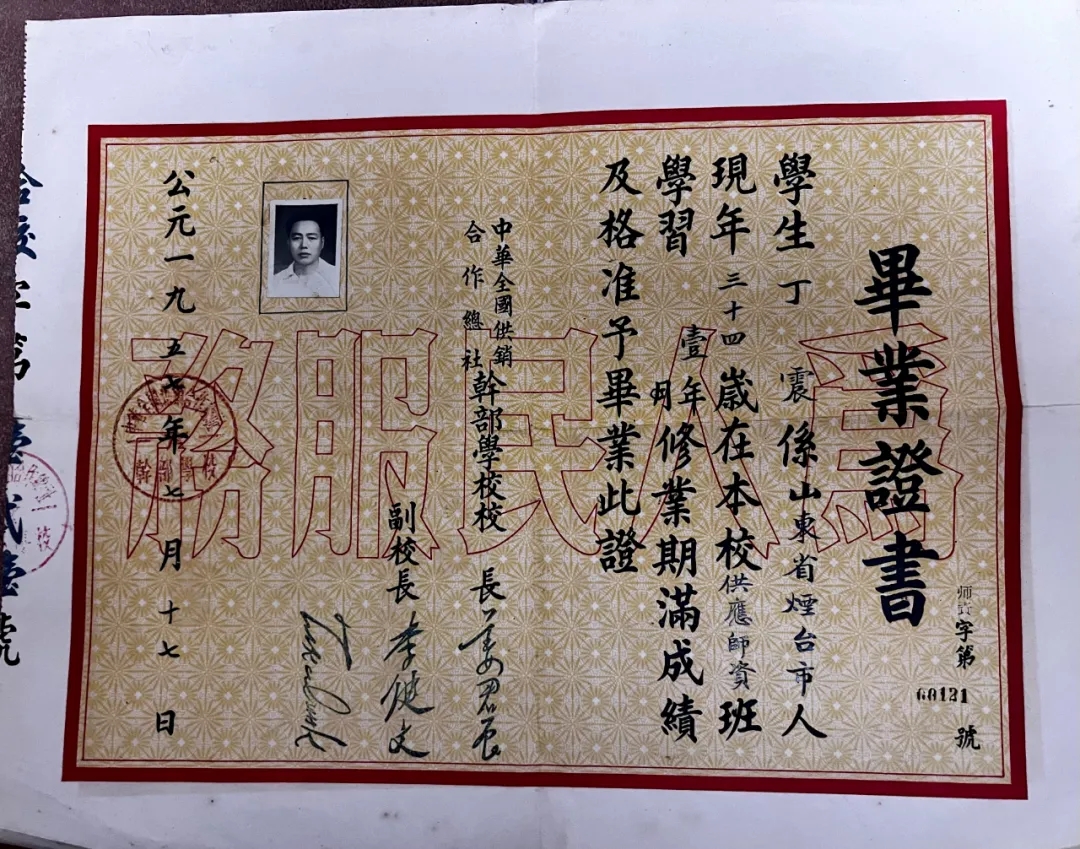 畢業證書
师訓字第60121號
學生丁震係山東省煙台市人
現年三十四歲在本校供應師資班
學習壹年 月修業期滿成績
及格准予畢業此證
中華全國供銷
合作總社
幹部學校校長
副校長李健文
公元一九五七年七月十七日
為人民服務
幹部學校